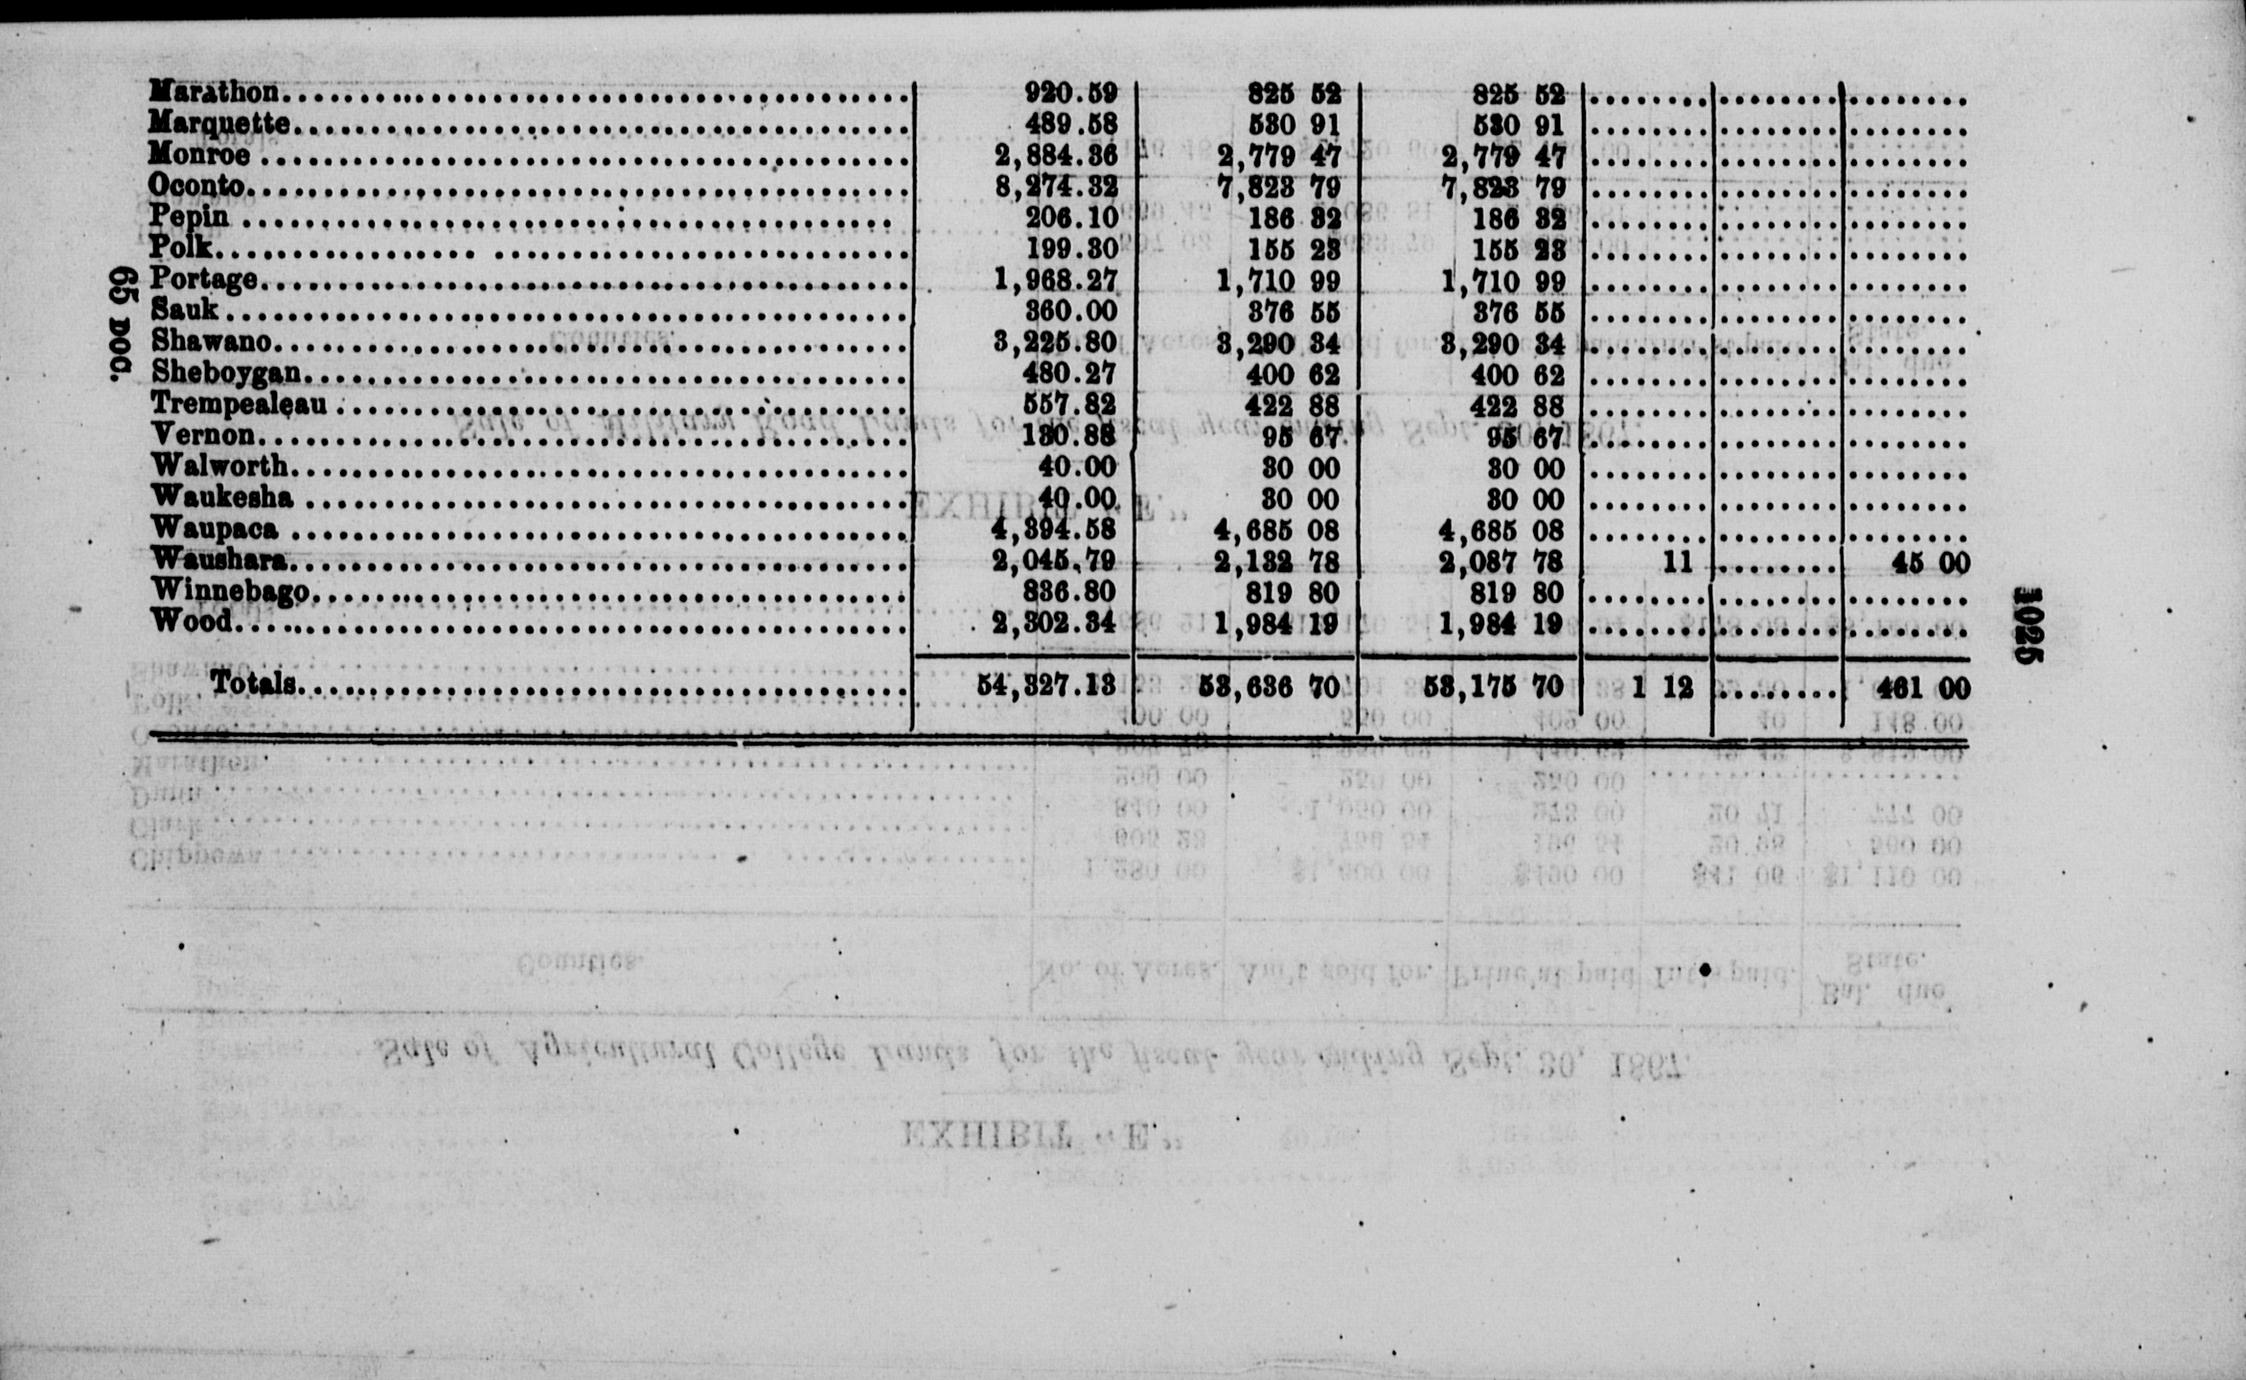 Marathon 920.59 825 52 825 52
Marquette 489.58 530 91 530 91
Monroe 2,884.36 2,779 47 2,779 47
Oconto 8,274.32 7,823 79 7,823 79
Pepin 206.10 186 32 186 32
Polk 199.30 155 23 155 23
Portage 1,968.27 1,710 99 1,710 99
Sauk 360.00 376 55 376 55
Shawano 3,225.80 3,290 34 3,290 34
Sheboygan 480.27 400 62 400 62
Trempealeau 557.82 422 88 422 88
Vernon 130.88 95 67 95 67
Walworth 40.00 30 00 30 00
Waukesha 40.00 30 00 30 00
Waupaca 4,394.58 4,685 08 4,685 08
Waushara 2,045.79 2,132 78 2,087 78 11 45 00
Winnebago 836.80 819 80 819 80
Wood 2,302.34 1,984 19 1,984 19
Totals 54,327.13 53,636 70 53,175 70 1 12 461 00
65 DOC.
1025